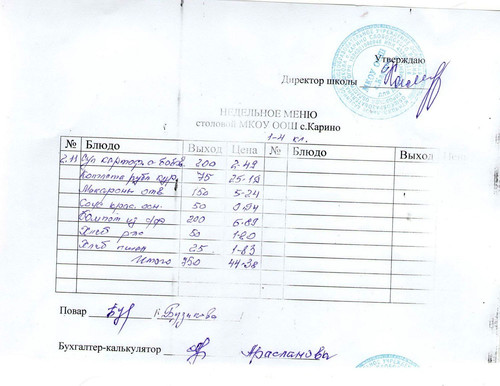 Утверждаю
Директор школы
НЕДЕЛЬНОЕ МЕНЮ
столовой МКОУ ООШ с.Карино
1-4 кл.
№ Блюдо Выход Цена № Блюдо Выход Цена
2.11 Суп картоф. с боб. 200 2-49
Котлета руб. кур. 75 25-19
Макароны отв. 150 5-24
Соус крас. осн. 50
Компот из с/ф 200 6-89
Хлеб рж 50 1-20
Хлеб пшен 25 1-83
Итого 750 44-38
Повар
Бухгалтер-калькулятор Арасланова